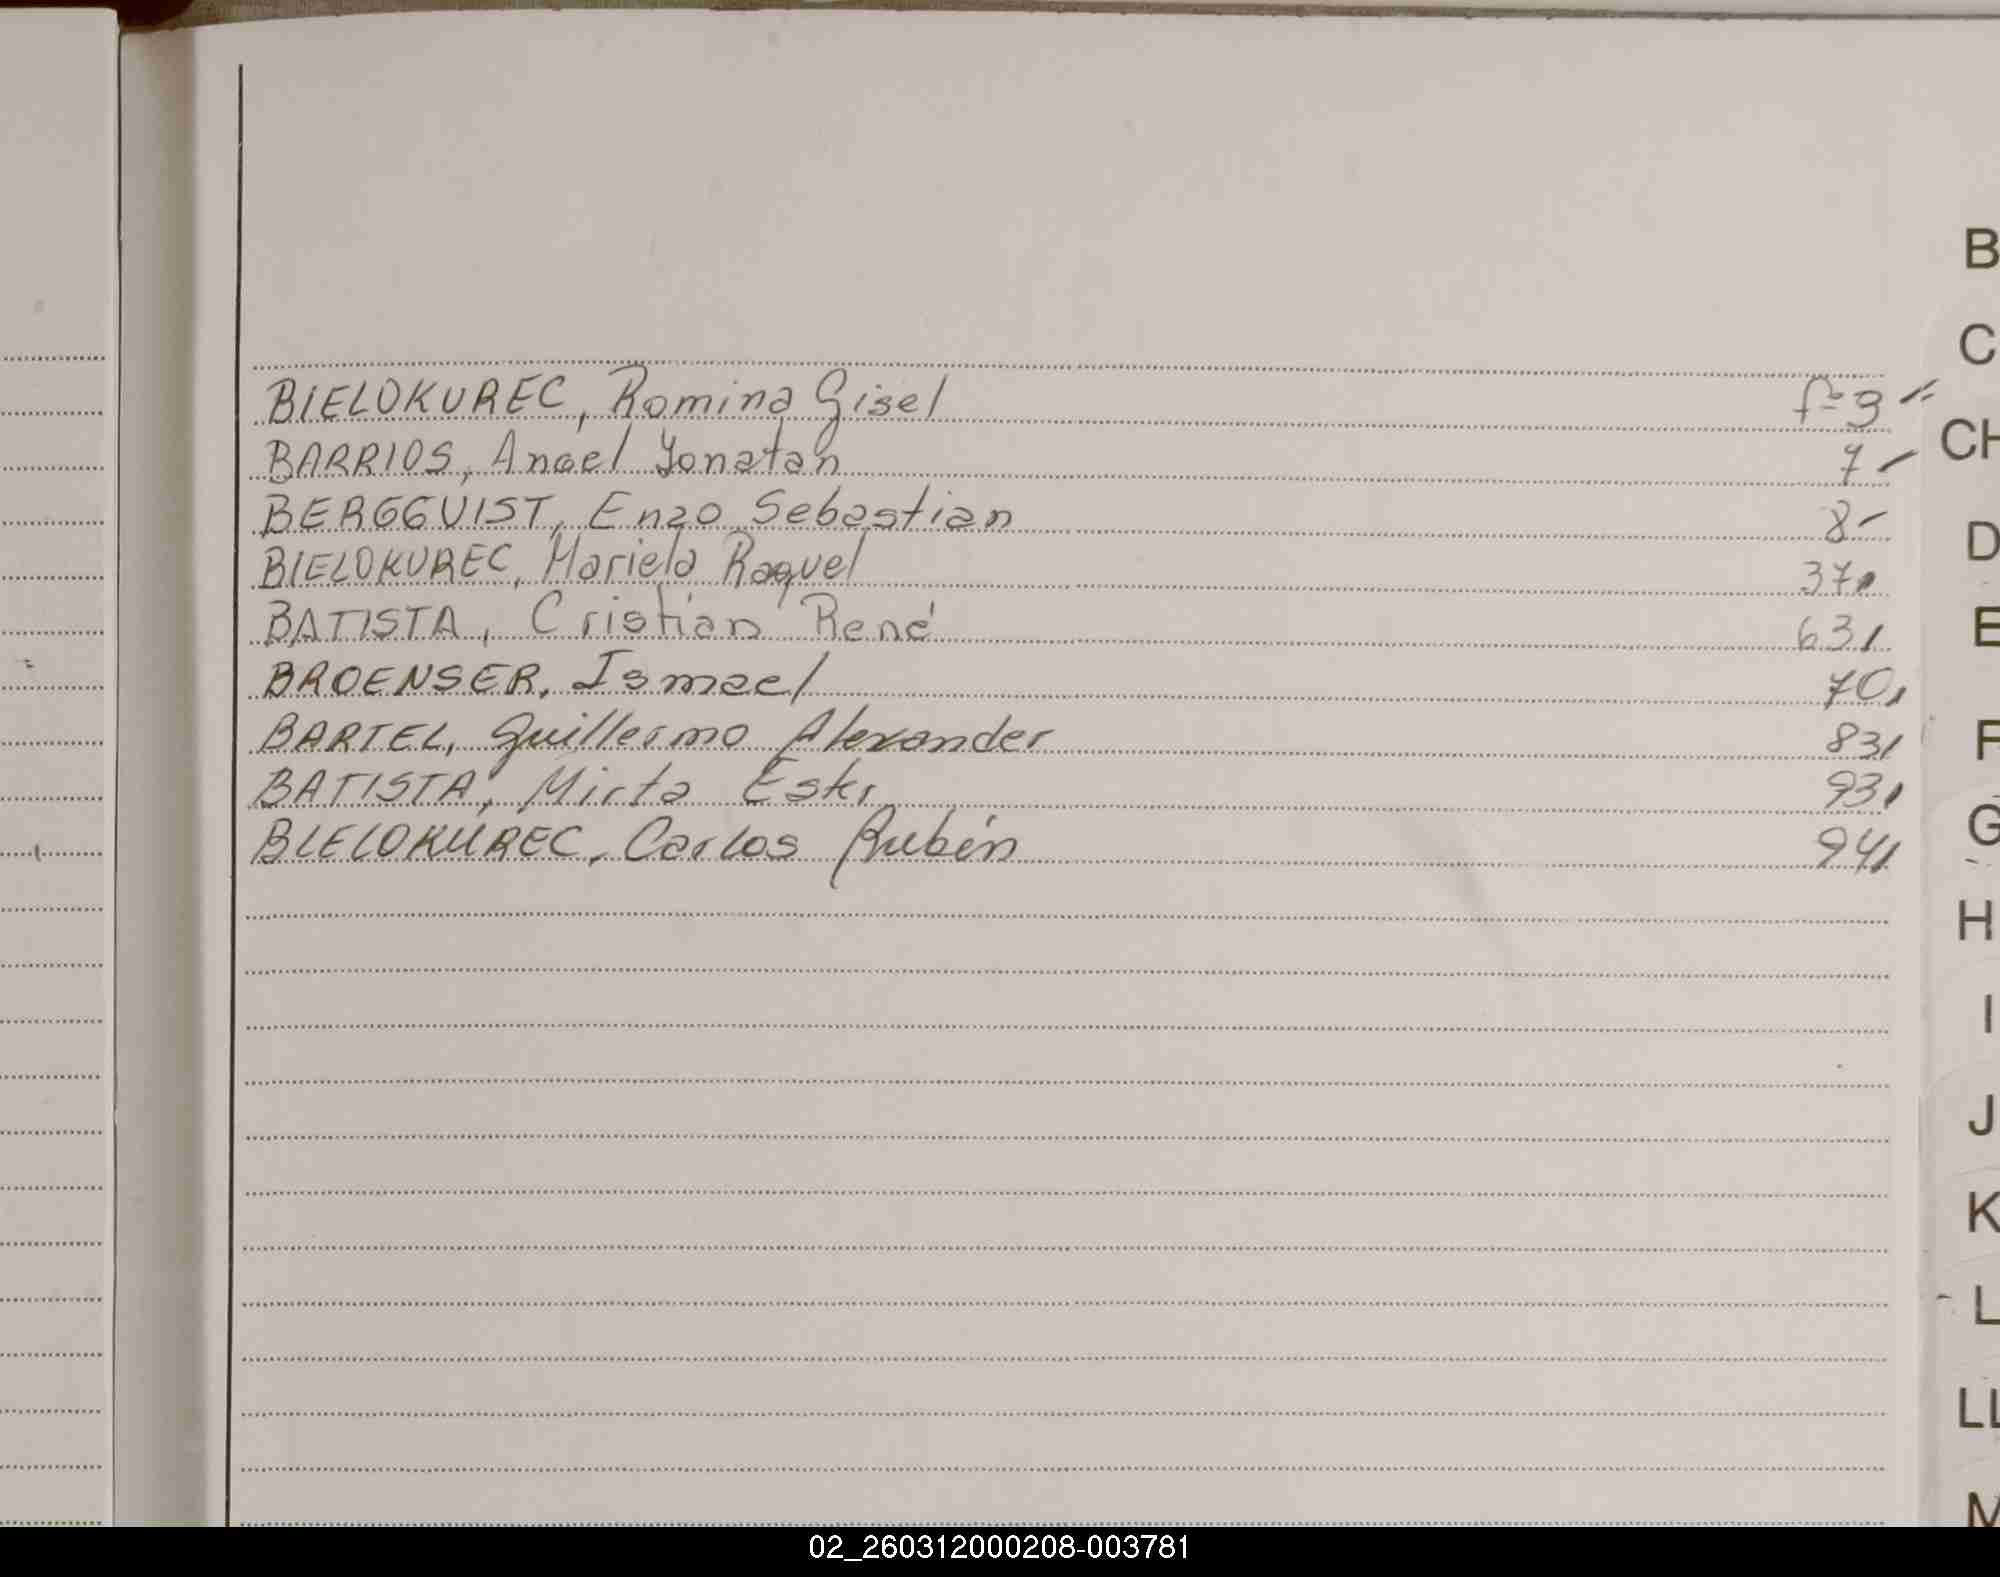 BIELOKUREC, Romina Gisel f=3
BARRIOS, Angel Yonatan 7
BERGGUIST, Enzo Sebastian 8
BIELOKUREC, Mariela Raquel 37
BATISTA, Cristian René 63
BROENSER, Ismael 70
BARTEL, Guillermo Alexander 83
BATISTA, Mirta 93
BIELOKUREC, Carlos Rubén 94
B
C
CH
D
E
F
G
H
I
J
K
L
LL
M
02_260312000208-003781